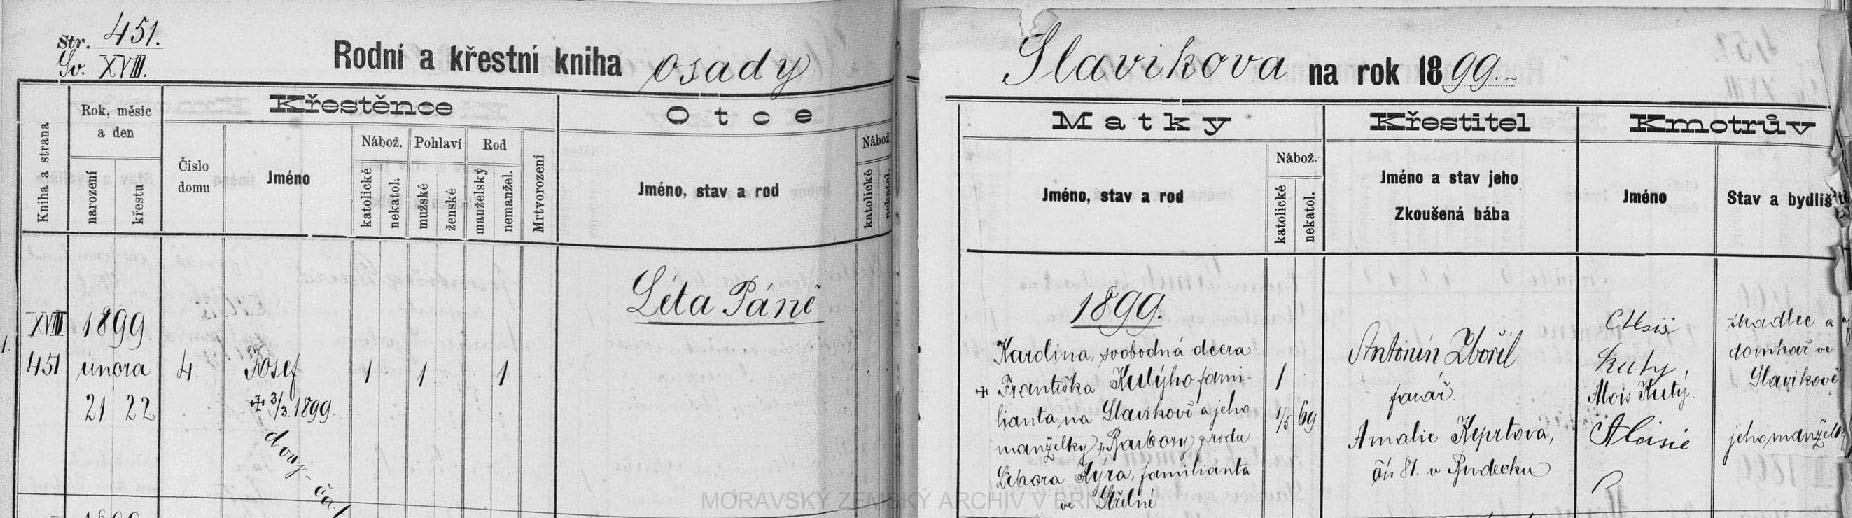 Str. 451.
Sv. XVIII.
Rodní a křestní kniha osady Slavikova na rok 1899.
Kniha a strana
Rok, měsíc
a den
narození
křestu
Křestěnce
Číslo
domu
Jméno
Nábož.
katolické
nekatol.
Pohlaví
mužské
ženské
Rod
manželský
nemanžel.
Mrtvorození
Otce
Jméno, stav a rod
Nábož.
katolické
nekatol.
Matky
Jméno, stav a rod
Nábož.
katolické
nekatol.
Křestitel
Jméno a stav jeho
Zkoušená bába
Kmotrův
Jméno
Stav a bydliště
Léta Páně 1899.
1.
XVIII
451
1899
února
21 22
4
Josef
+ 3/3 1899.
1 1 1
Karolina, svobodná dcera
+ Františka Kutýho fami-
lianta na Slavikově a jeho
manželky Barbory, z rodu
familianta
ve Střelné
1
1/5 69
Antonín Zbořil
farář.
Amalie Keprtová,
v Budečku
Alois
Kutý
Alois Kutý.
Aloisie
tkadlec a
domkař ve
Slavikově
jeho manželka
MORAVSKÝ ZEMSKÝ ARCHIV V BRNĚ